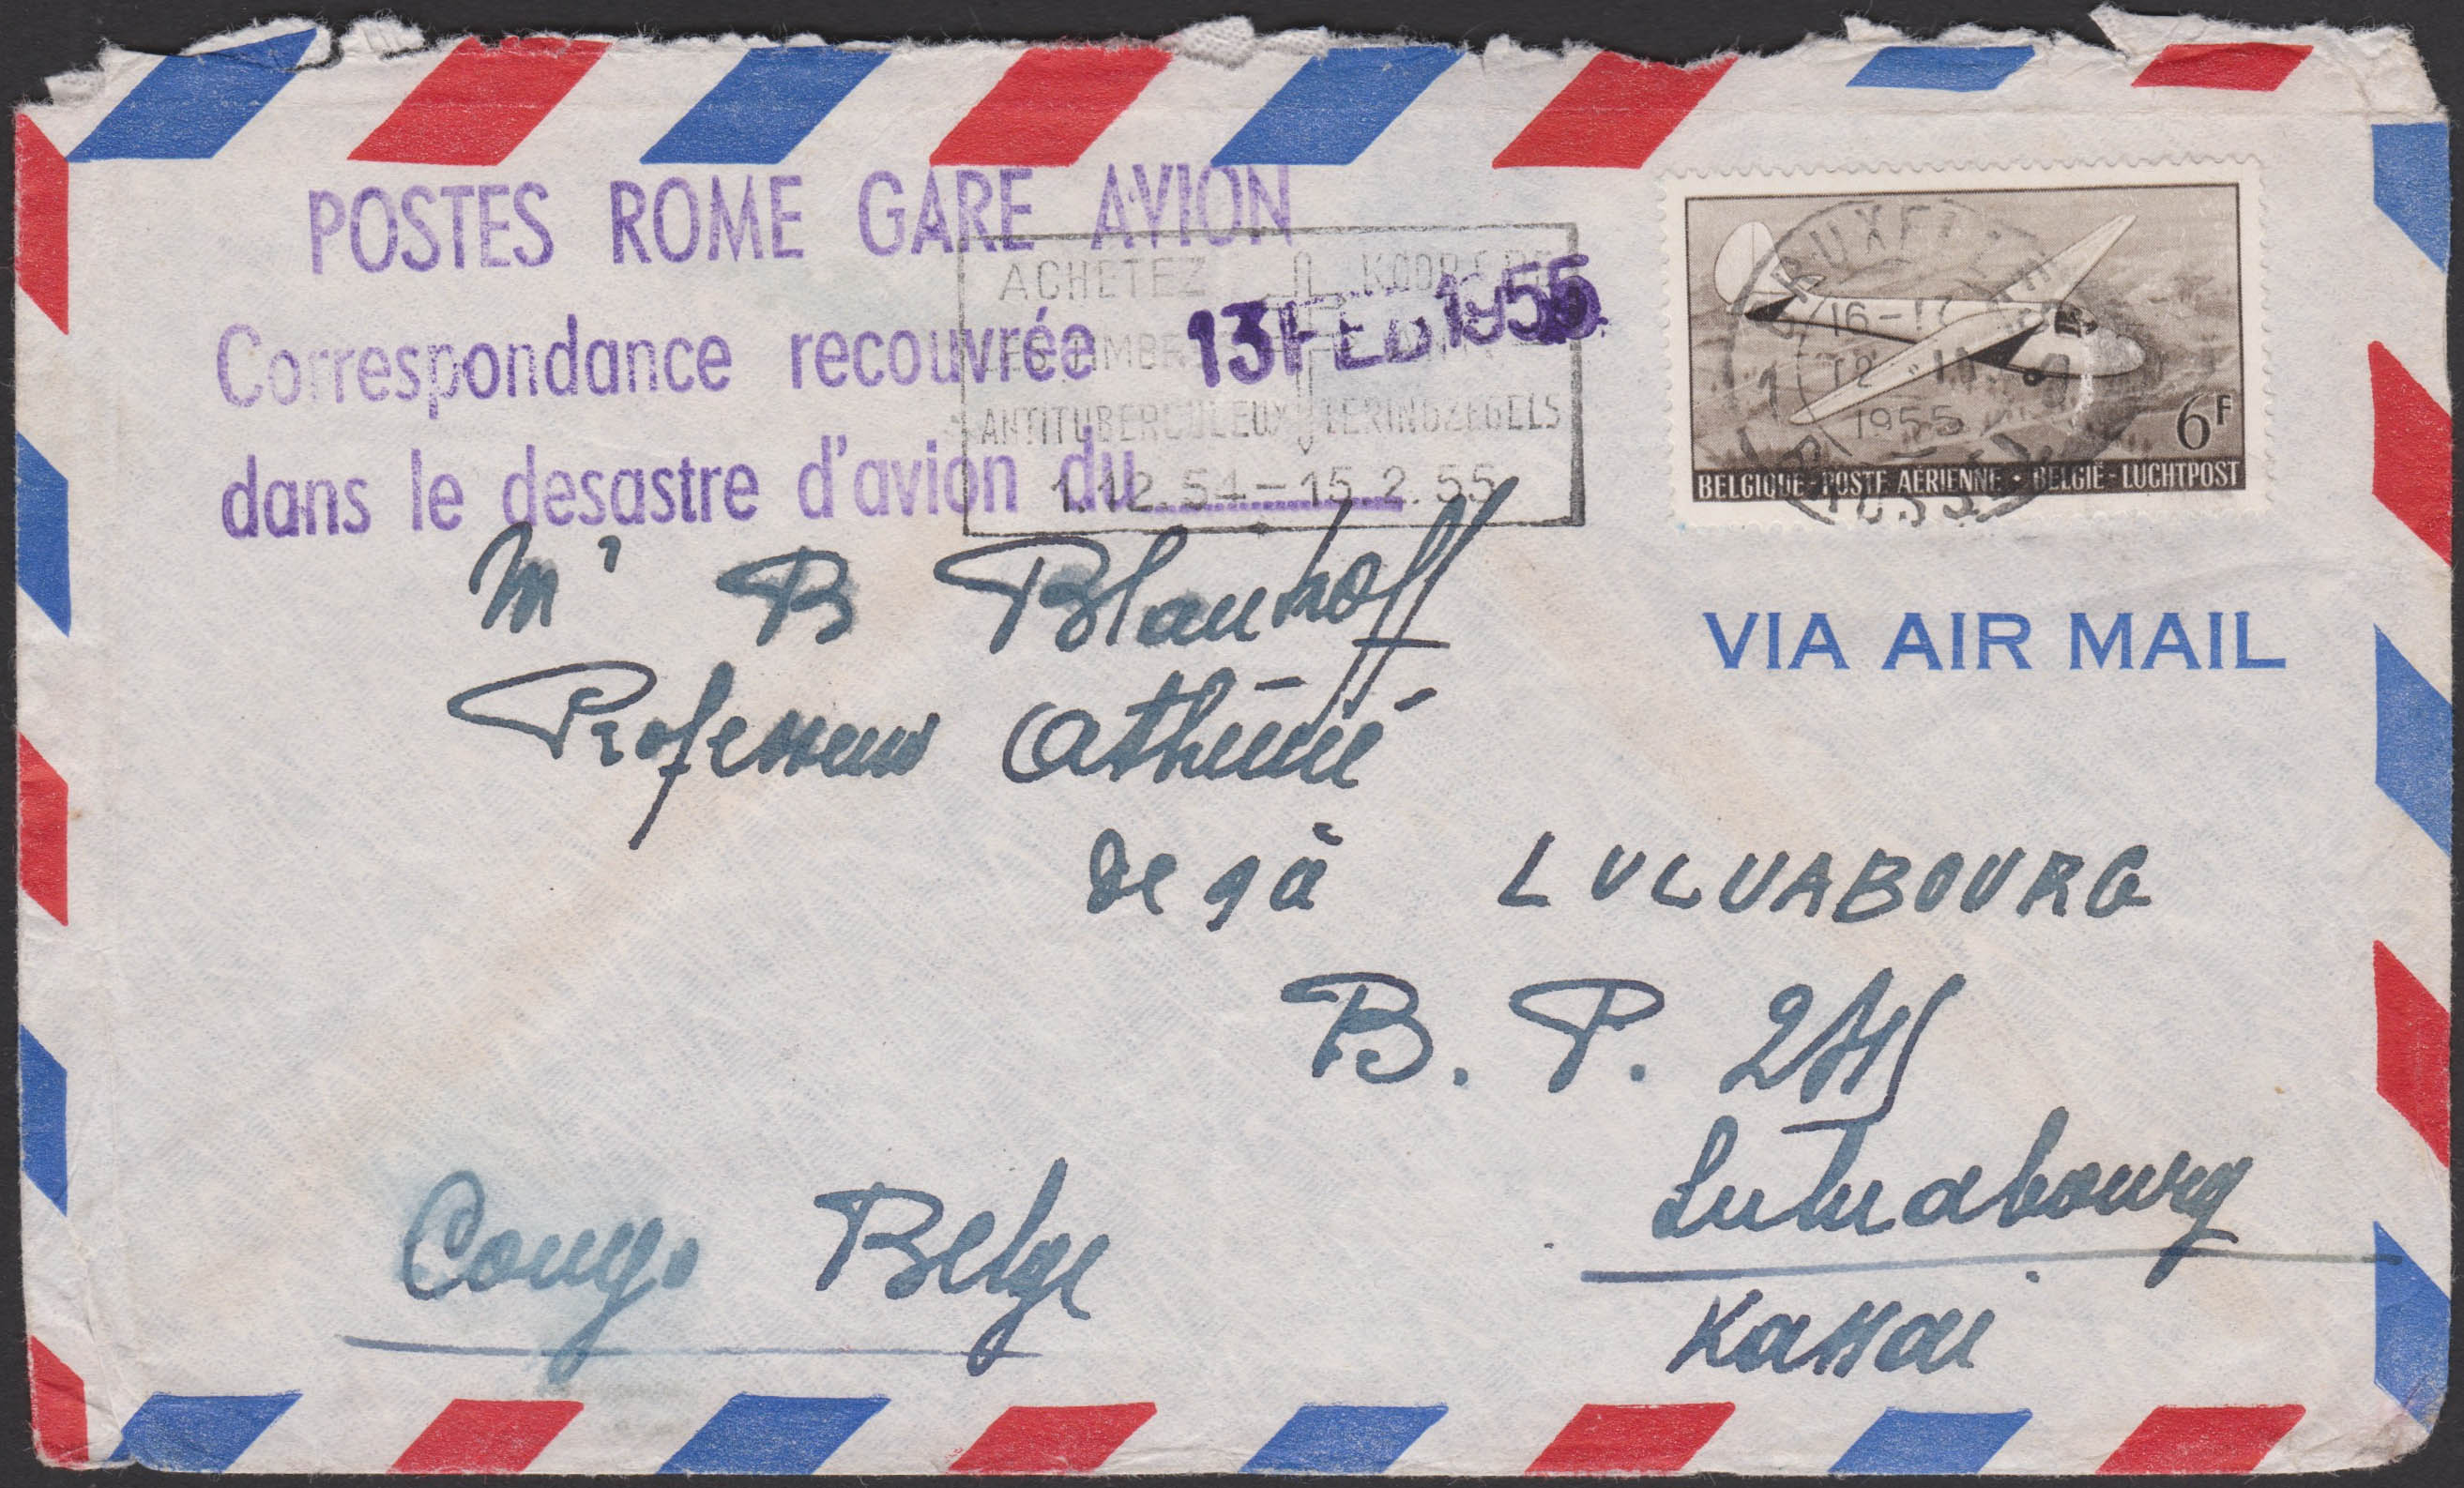 POSTES ROME GARE AVION
Correspondance recouvrée 13 FEB 1955
dans le desastre d'avion du
ACHETEZ KOOPT DE
LES TIMBRES
ANTITUBERCULEUX TERINGZEGELS
1.12.54-15.2.55
16-17
12-II
1955
6F
BELGIQUE-POSTE AÉRIENNE • BELGIË-LUCHTPOST
VIA AIR MAIL
Mr B Blankoff
Professeur Athénée
de et à LULUABOURG
B. P. 245
Luluabourg
Kassai
Congo Belge